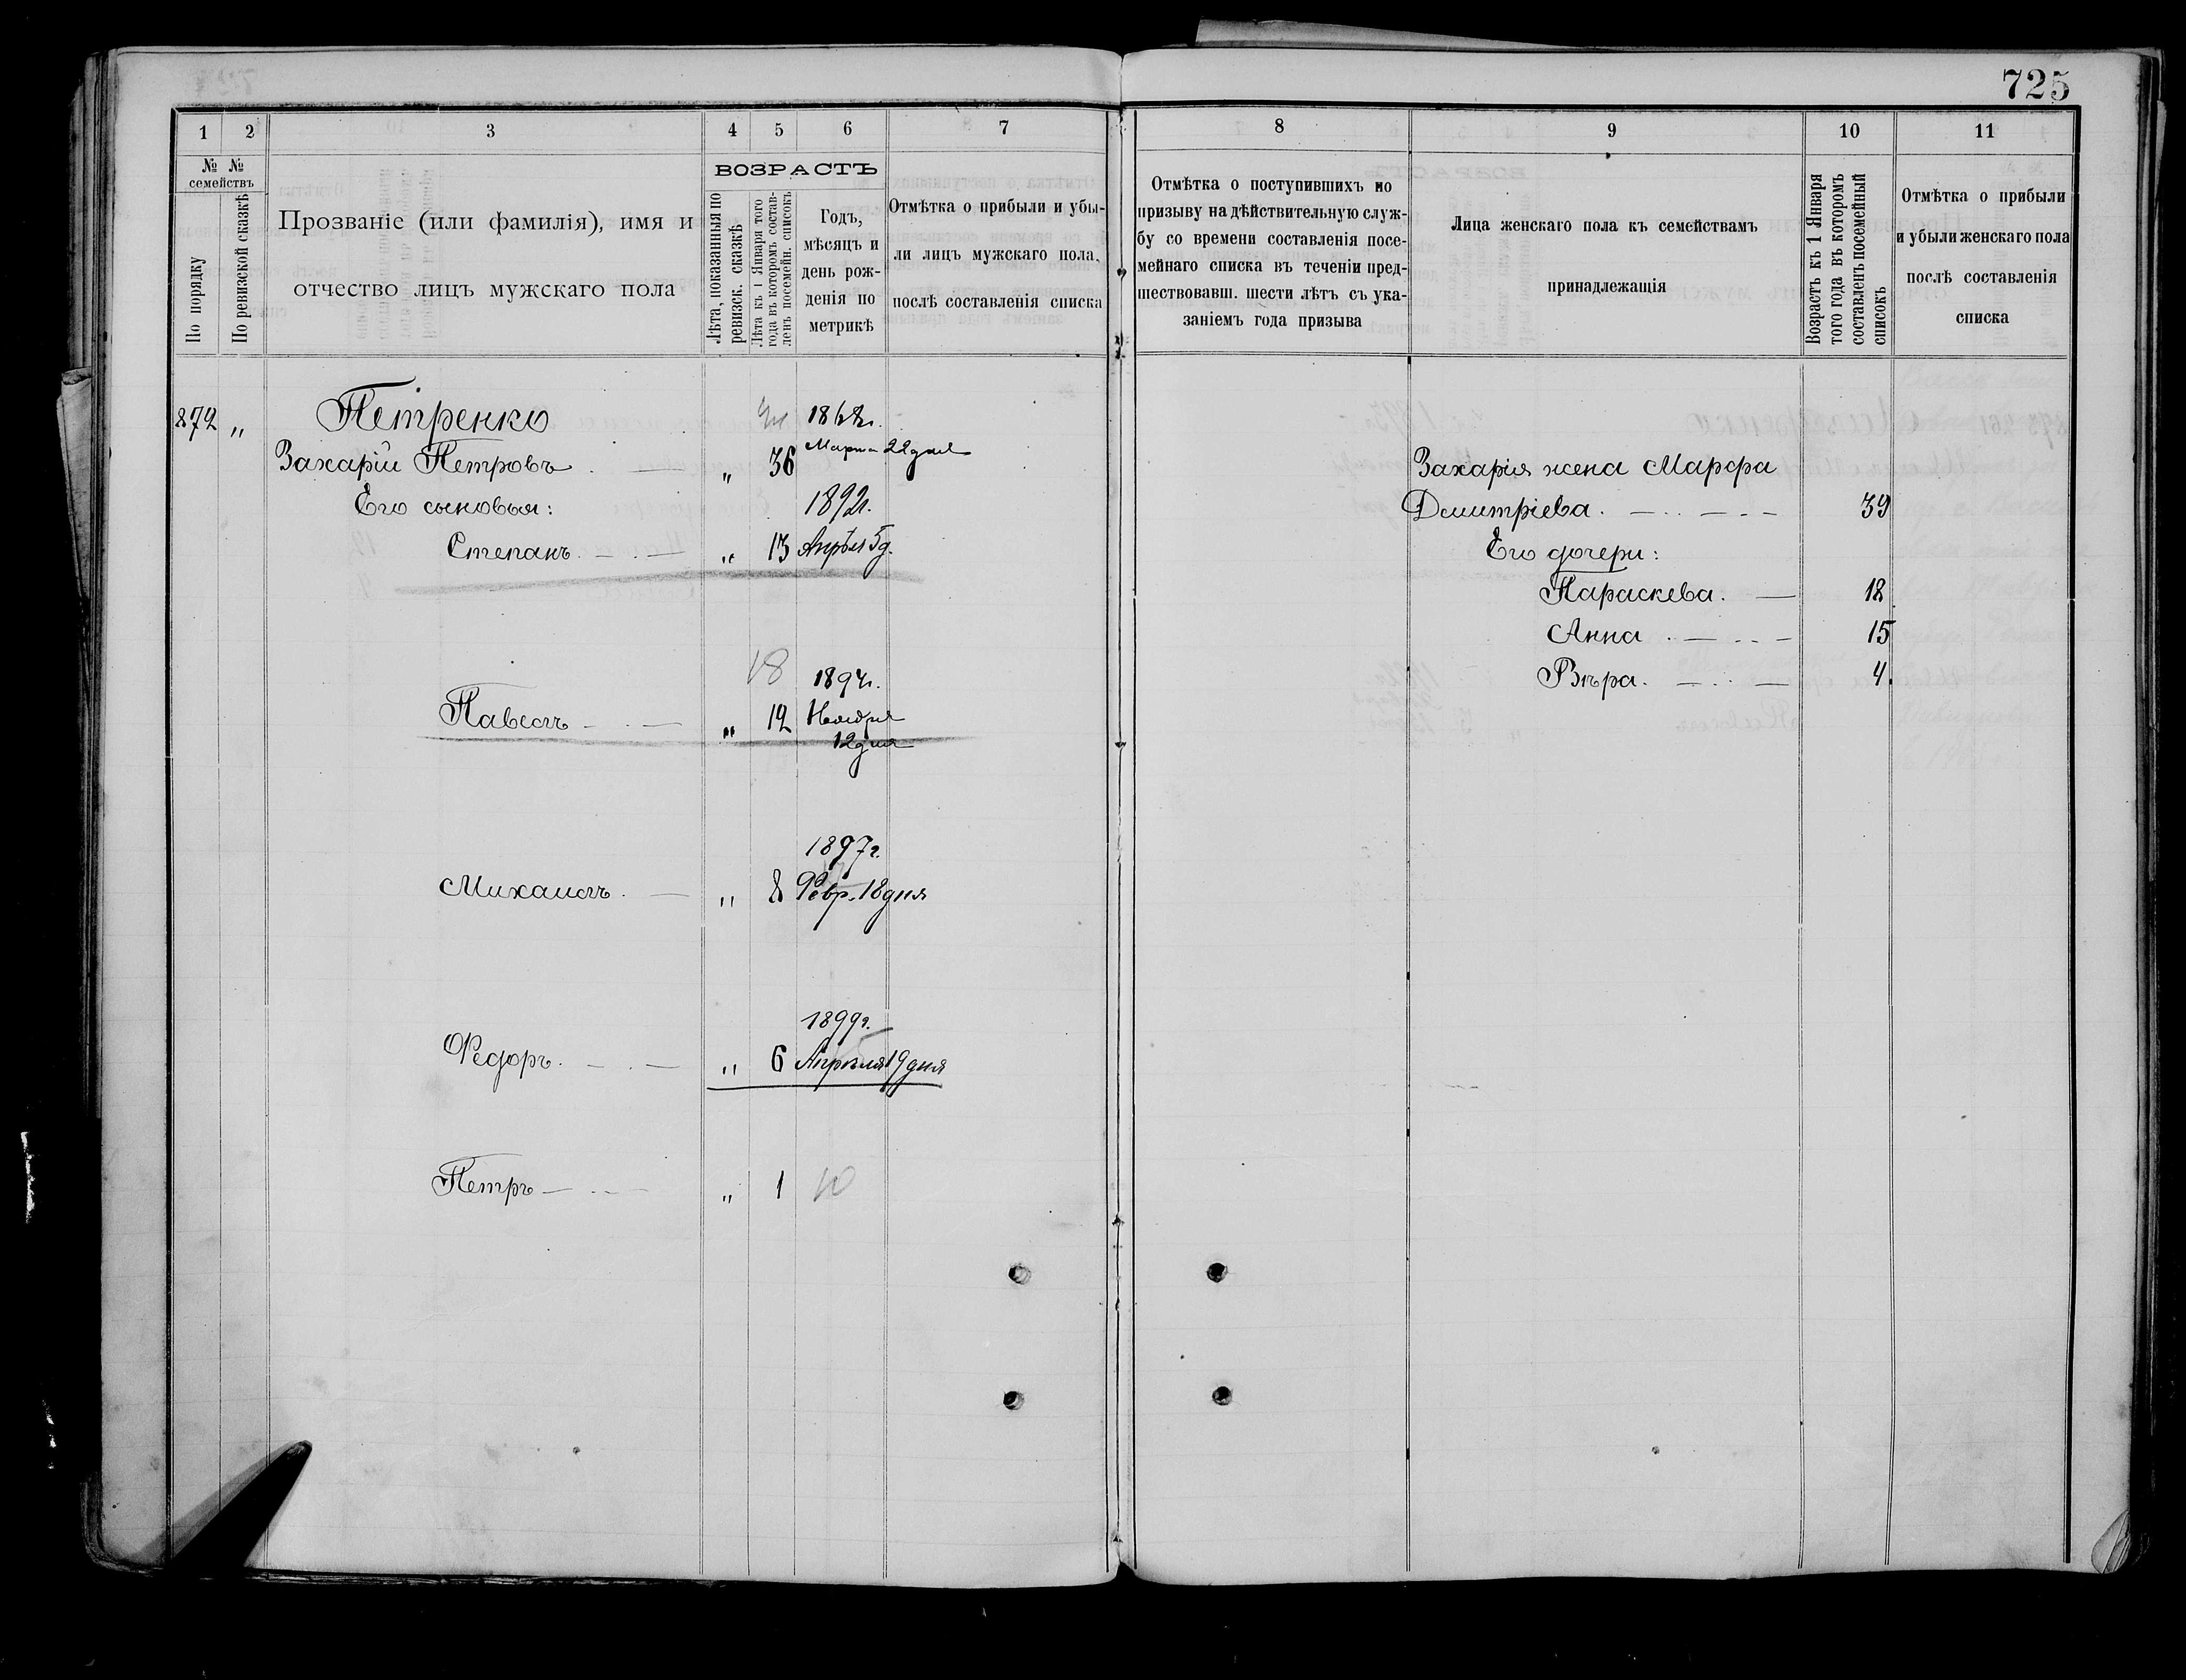 725
1 2 3 4 5 6 7
№ № семействъ
По порядку
По ревизской сказкѣ
Прозваніе (или фамилія), имя и
отчество лицъ мужскаго пола
ВОЗРАСТЪ
Лѣта, показанныя по
ревизск. сказкѣ
Лѣта къ 1 Января того
года въ которомъ состав-
ленъ посемейн. списокъ
Годъ,
мѣсяцъ и
день рож-
денія по
метрикѣ
Отмѣтка о прибыли и убы-
ли лицъ мужскаго пола,
послѣ составленія списка
872 " Петренко 1868г.
Захарій Петровъ " 36 Марта 22 дня
Его сыновья: 1892г.
Степанъ " 13 Апрѣля 5 д.
18 1894г.
Павелъ " 12 Ноября
12 дня
1897г.
Михаилъ " 8 Февр. 18 дня
1899г.
Федоръ " 6 Апрѣля 19 дня
Петръ " 1 10
8 9 10 11
Отмѣтка о поступившихъ по
призыву на дѣйствительную служ-
бу со времени составленія посе-
мейнаго списка въ теченіи пред-
шествовавш. шести лѣтъ съ ука-
заніемъ года призыва
Лица женскаго пола къ семействамъ
принадлежащія
Возрастъ къ 1 Января
того года въ которомъ
составленъ посемейный
списокъ
Отмѣтка о прибыли
и убыли женскаго пола
послѣ составленія
списка
Захарія жена Марфа
Димитріева. 39
Его дочери:
Параскева. 18
Анна 15
Вѣра. 4.